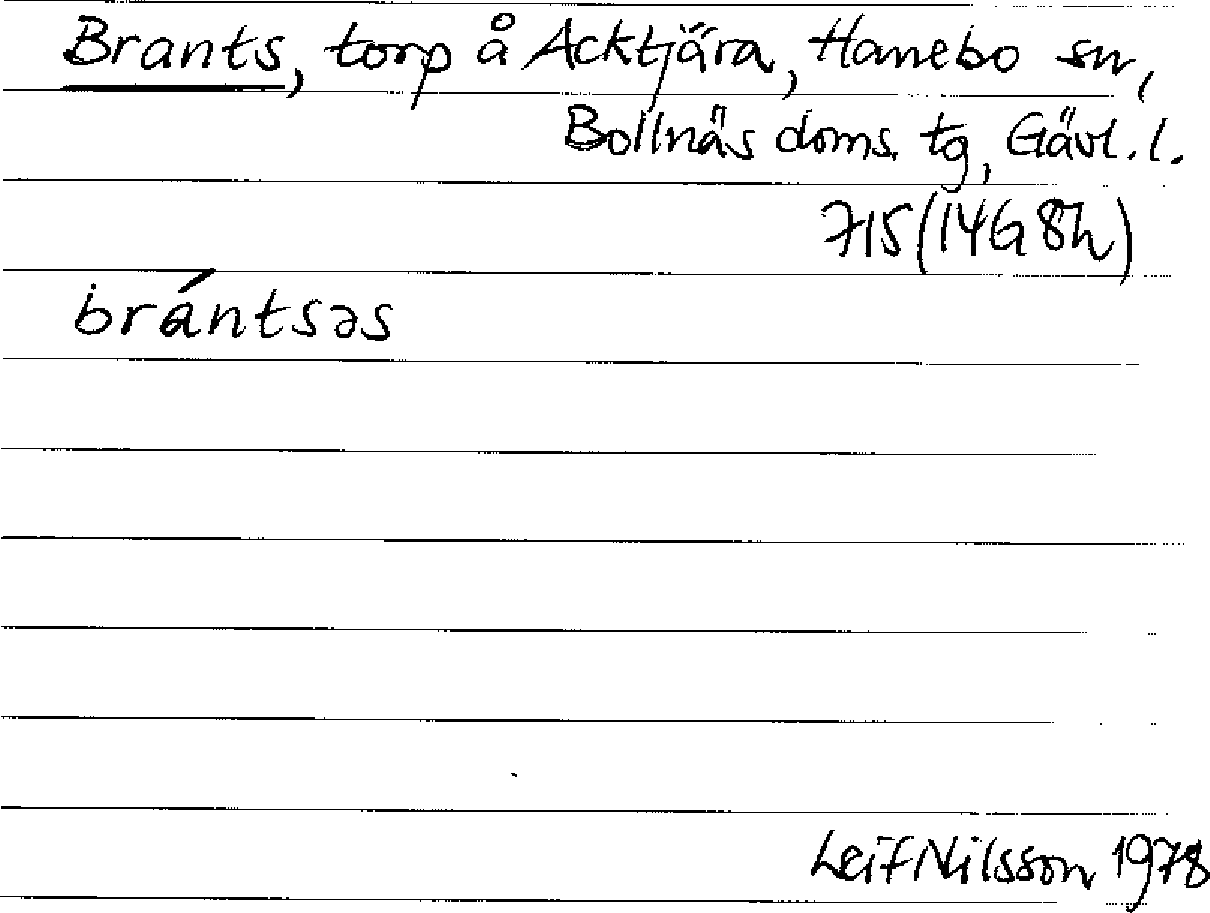 Brants, torp å Acktjära, Hanebo sn,
Bollnäs doms. tg, Gävl. l.
715 (14G 8h)
brántsəs
Leif Nilsson 1978